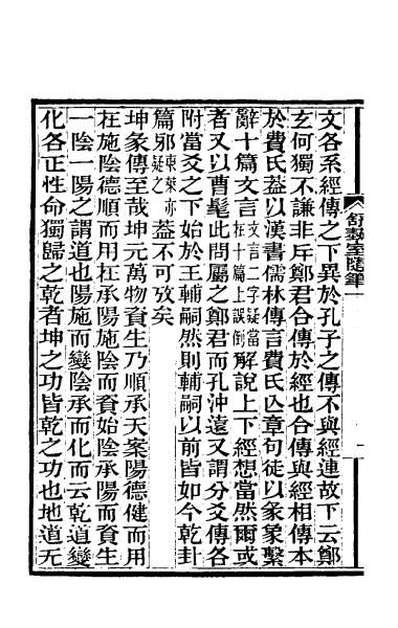 舒藝室隨筆一
文各系經傳之下異於孔子之傳不與經連故下云鄭
玄何獨不謙非斥鄭君合傳於經也合傳與經相傳本
於費氏葢以漢書儒林傳言費氏亾章句徒以彖象繫
辭十篇文言文言二字疑當在十篇上誤倒解說上下經想當然爾或
者又以曹髦此問屬之鄭君而孔沖遠又謂分爻傳各
附當爻之下始於王輔嗣然則輔嗣以前皆如今乾卦
篇邪東萊亦疑之葢不可攷矣
坤彖傳至哉坤元萬物資生乃順承天案陽德健而用
在施陰德順而用在承陽施陰而資始陰承陽而資生
一陰一陽之謂道也陽施而變陰承而化而云乾道變
化各正性命獨歸之乾者坤之功皆乾之功也地道无